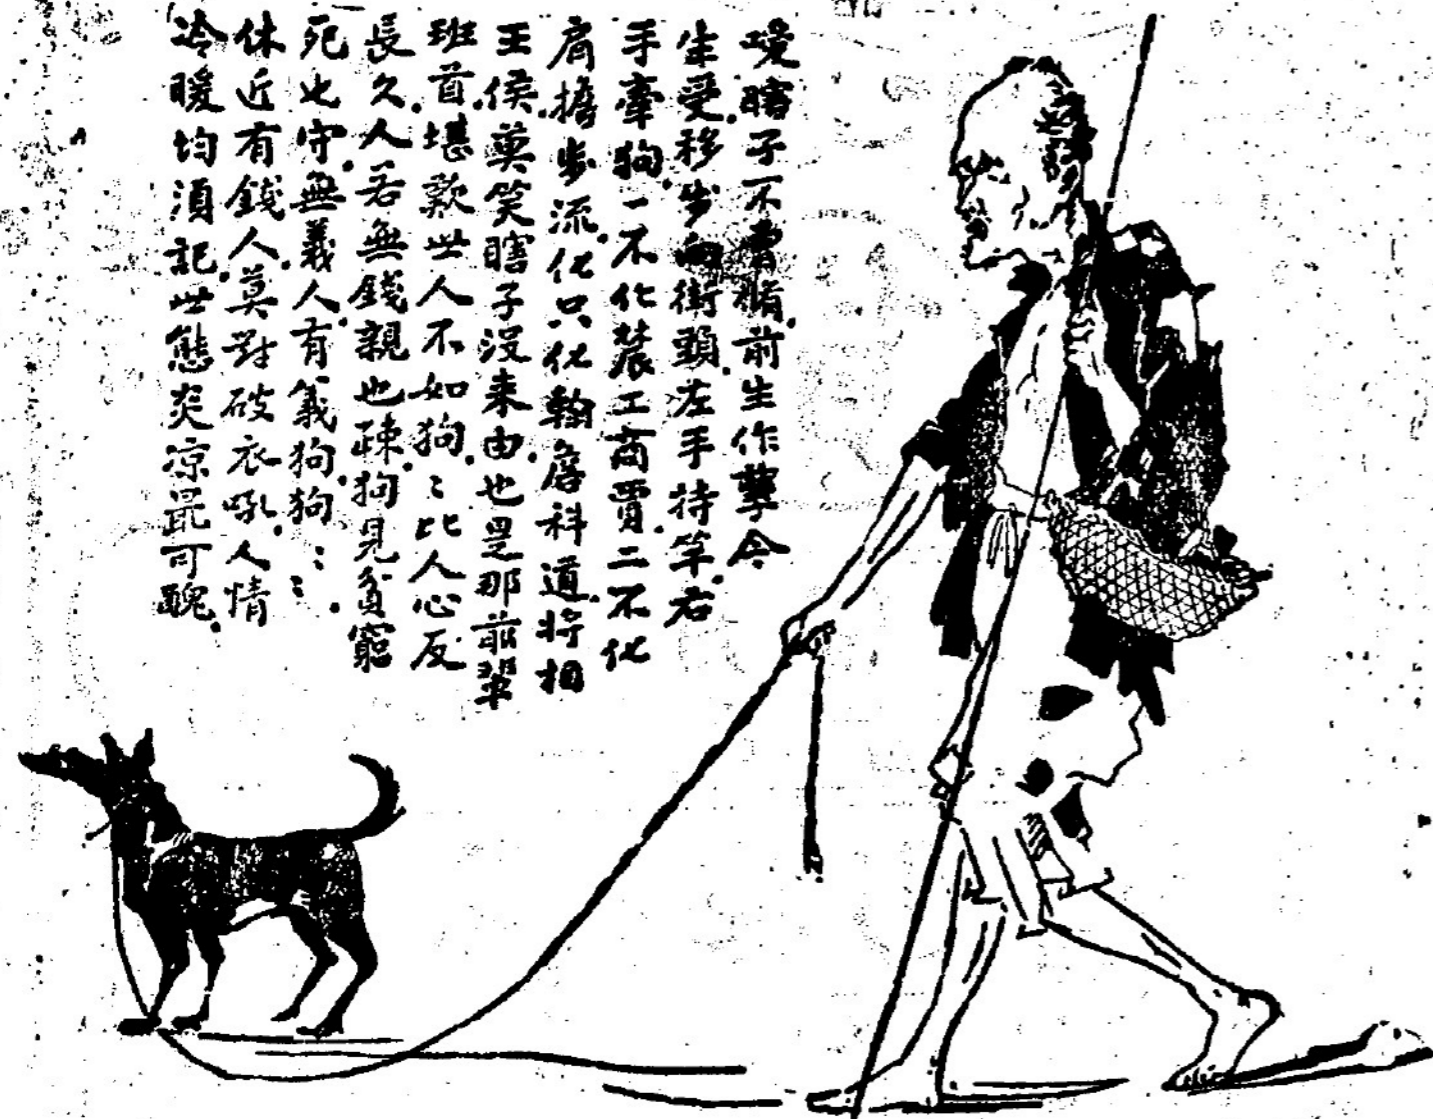 嘆瞎子不會脩.前生作孽今
生受.移步向街頭.左手持竿.右
手牽狗.一不化農工商賈.二不化
肩擔步流.化只化翰詹科道.將相
王侯.莫笑瞎子没来由.也是那前輩
班首.堪歎世人不如狗.狗比人心反
長久.人若無錢親也疎.狗見貧窮
死也守.無義人.有義狗.狗狗:::.
休近有錢人.莫對破衣吼.人情
冷暖均須記.世態炎凉最可醜.